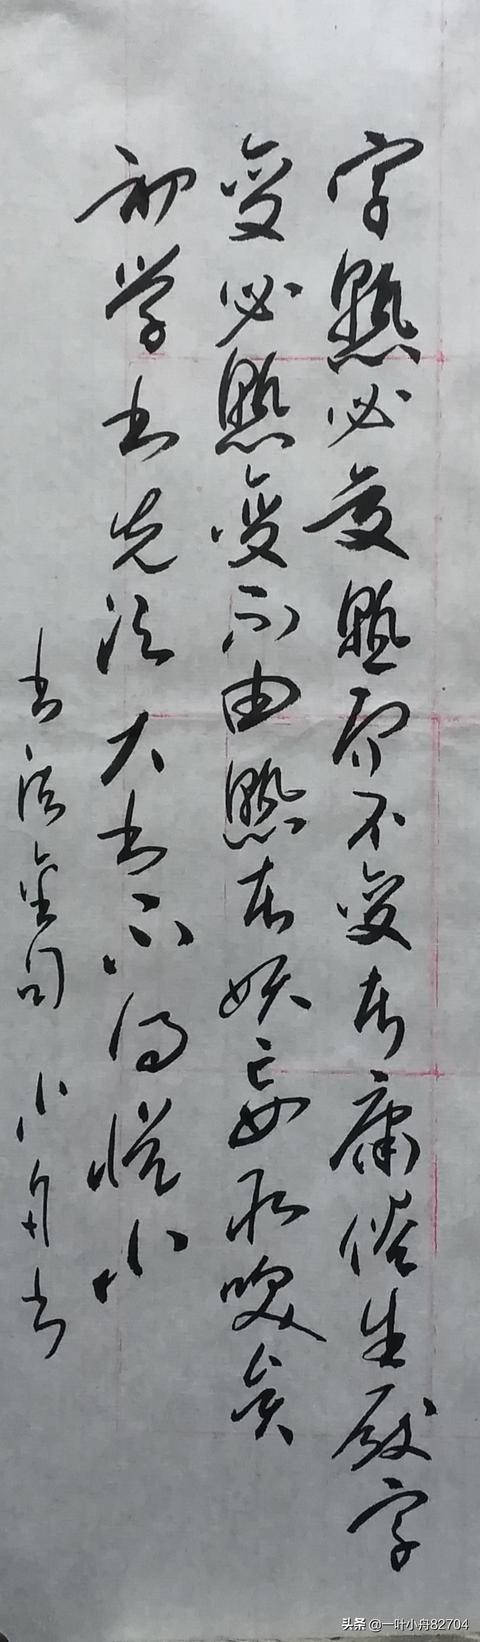 字熟必变熟而不变者庸俗生厌字
变必熟变不由熟者妖妄取笑矣
初学书先须大书不得从小
书法金句 小舟书
头条 @一叶小舟82704